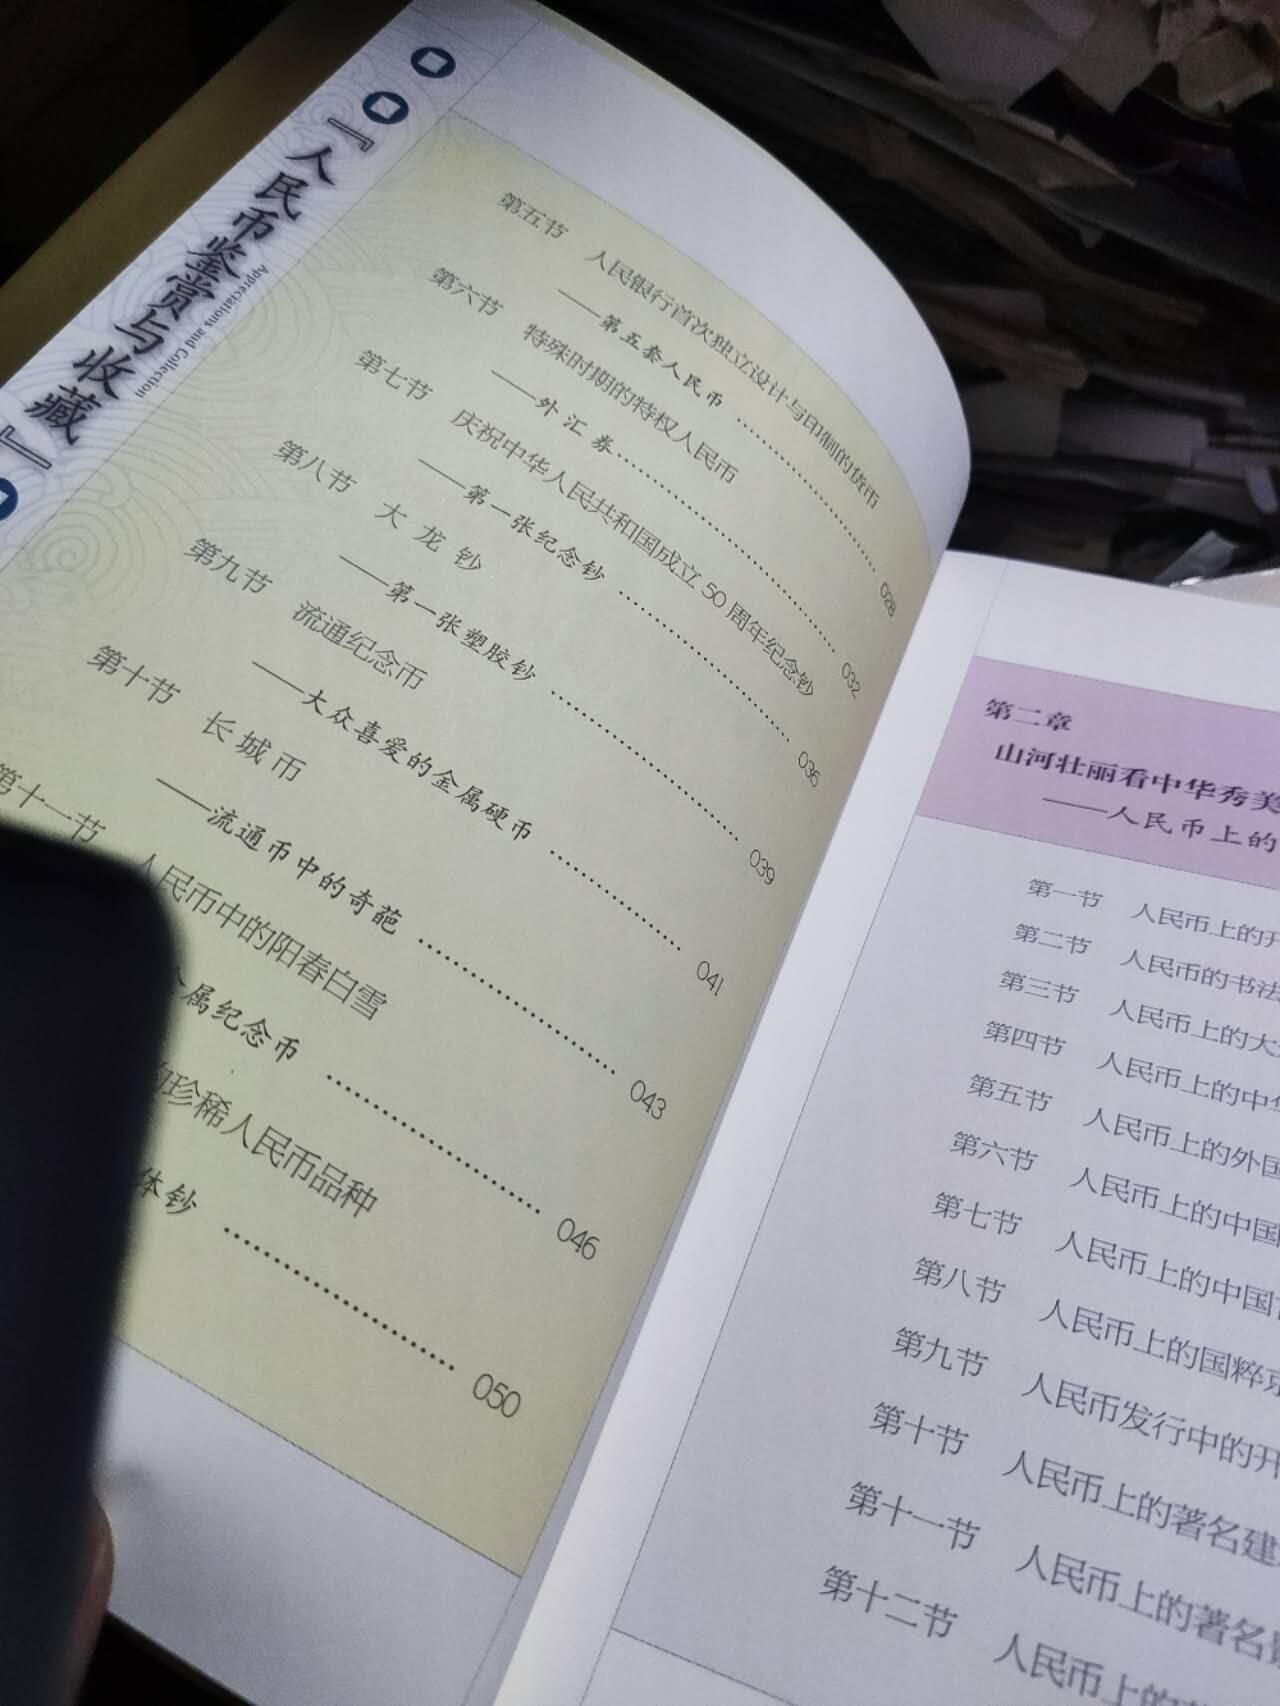 『人民币鉴赏与收藏』
Appreciations and Collection
第五节 人民银行首次独立设计与印制的货币
——第五套人民币 …… 028
第六节 特殊时期的特权人民币
——外汇券 …… 032
第七节 庆祝中华人民共和国成立50周年纪念钞
——第一张纪念钞 …… 036
第八节 大龙钞
——第一张塑胶钞 …… 039
第九节 流通纪念币
——大众喜爱的金属硬币 …… 041
第十节 长城币
——流通币中的奇葩 …… 043
第十一节 人民币中的阳春白雪
金属纪念币 …… 046
的珍稀人民币品种
体钞 …… 050
第二章
山河壮丽看中华秀美
——人民币上的
第一节 人民币上的开
第二节 人民币的书法
第三节 人民币上的大
第四节 人民币上的中华
第五节 人民币上的外国
第六节 人民币上的中国
第七节 人民币上的中国
第八节 人民币上的国粹京
第九节 人民币发行中的开
第十节 人民币上的著名建
第十一节 人民币上的著名
第十二节 人民币上的